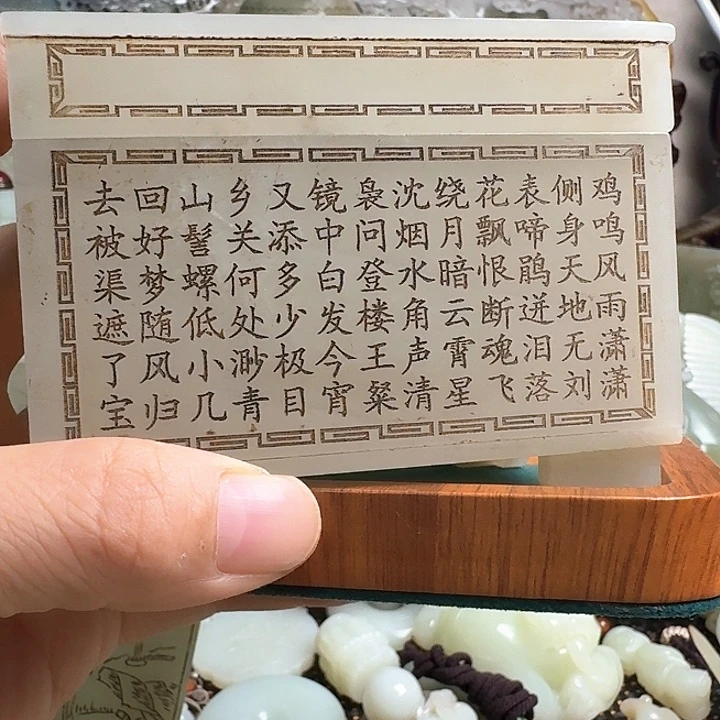 鸡鸣风雨潇潇
侧身天地无刘
表啼鹃迸泪落
花飘恨断魂飞
绕月暗云霄星
沈烟水角声清
袅问登楼王粲
镜中白发今宵
又添多少极目
乡关何处渺青
山髻螺低小几
回好梦随风归
去被渠遮了宝